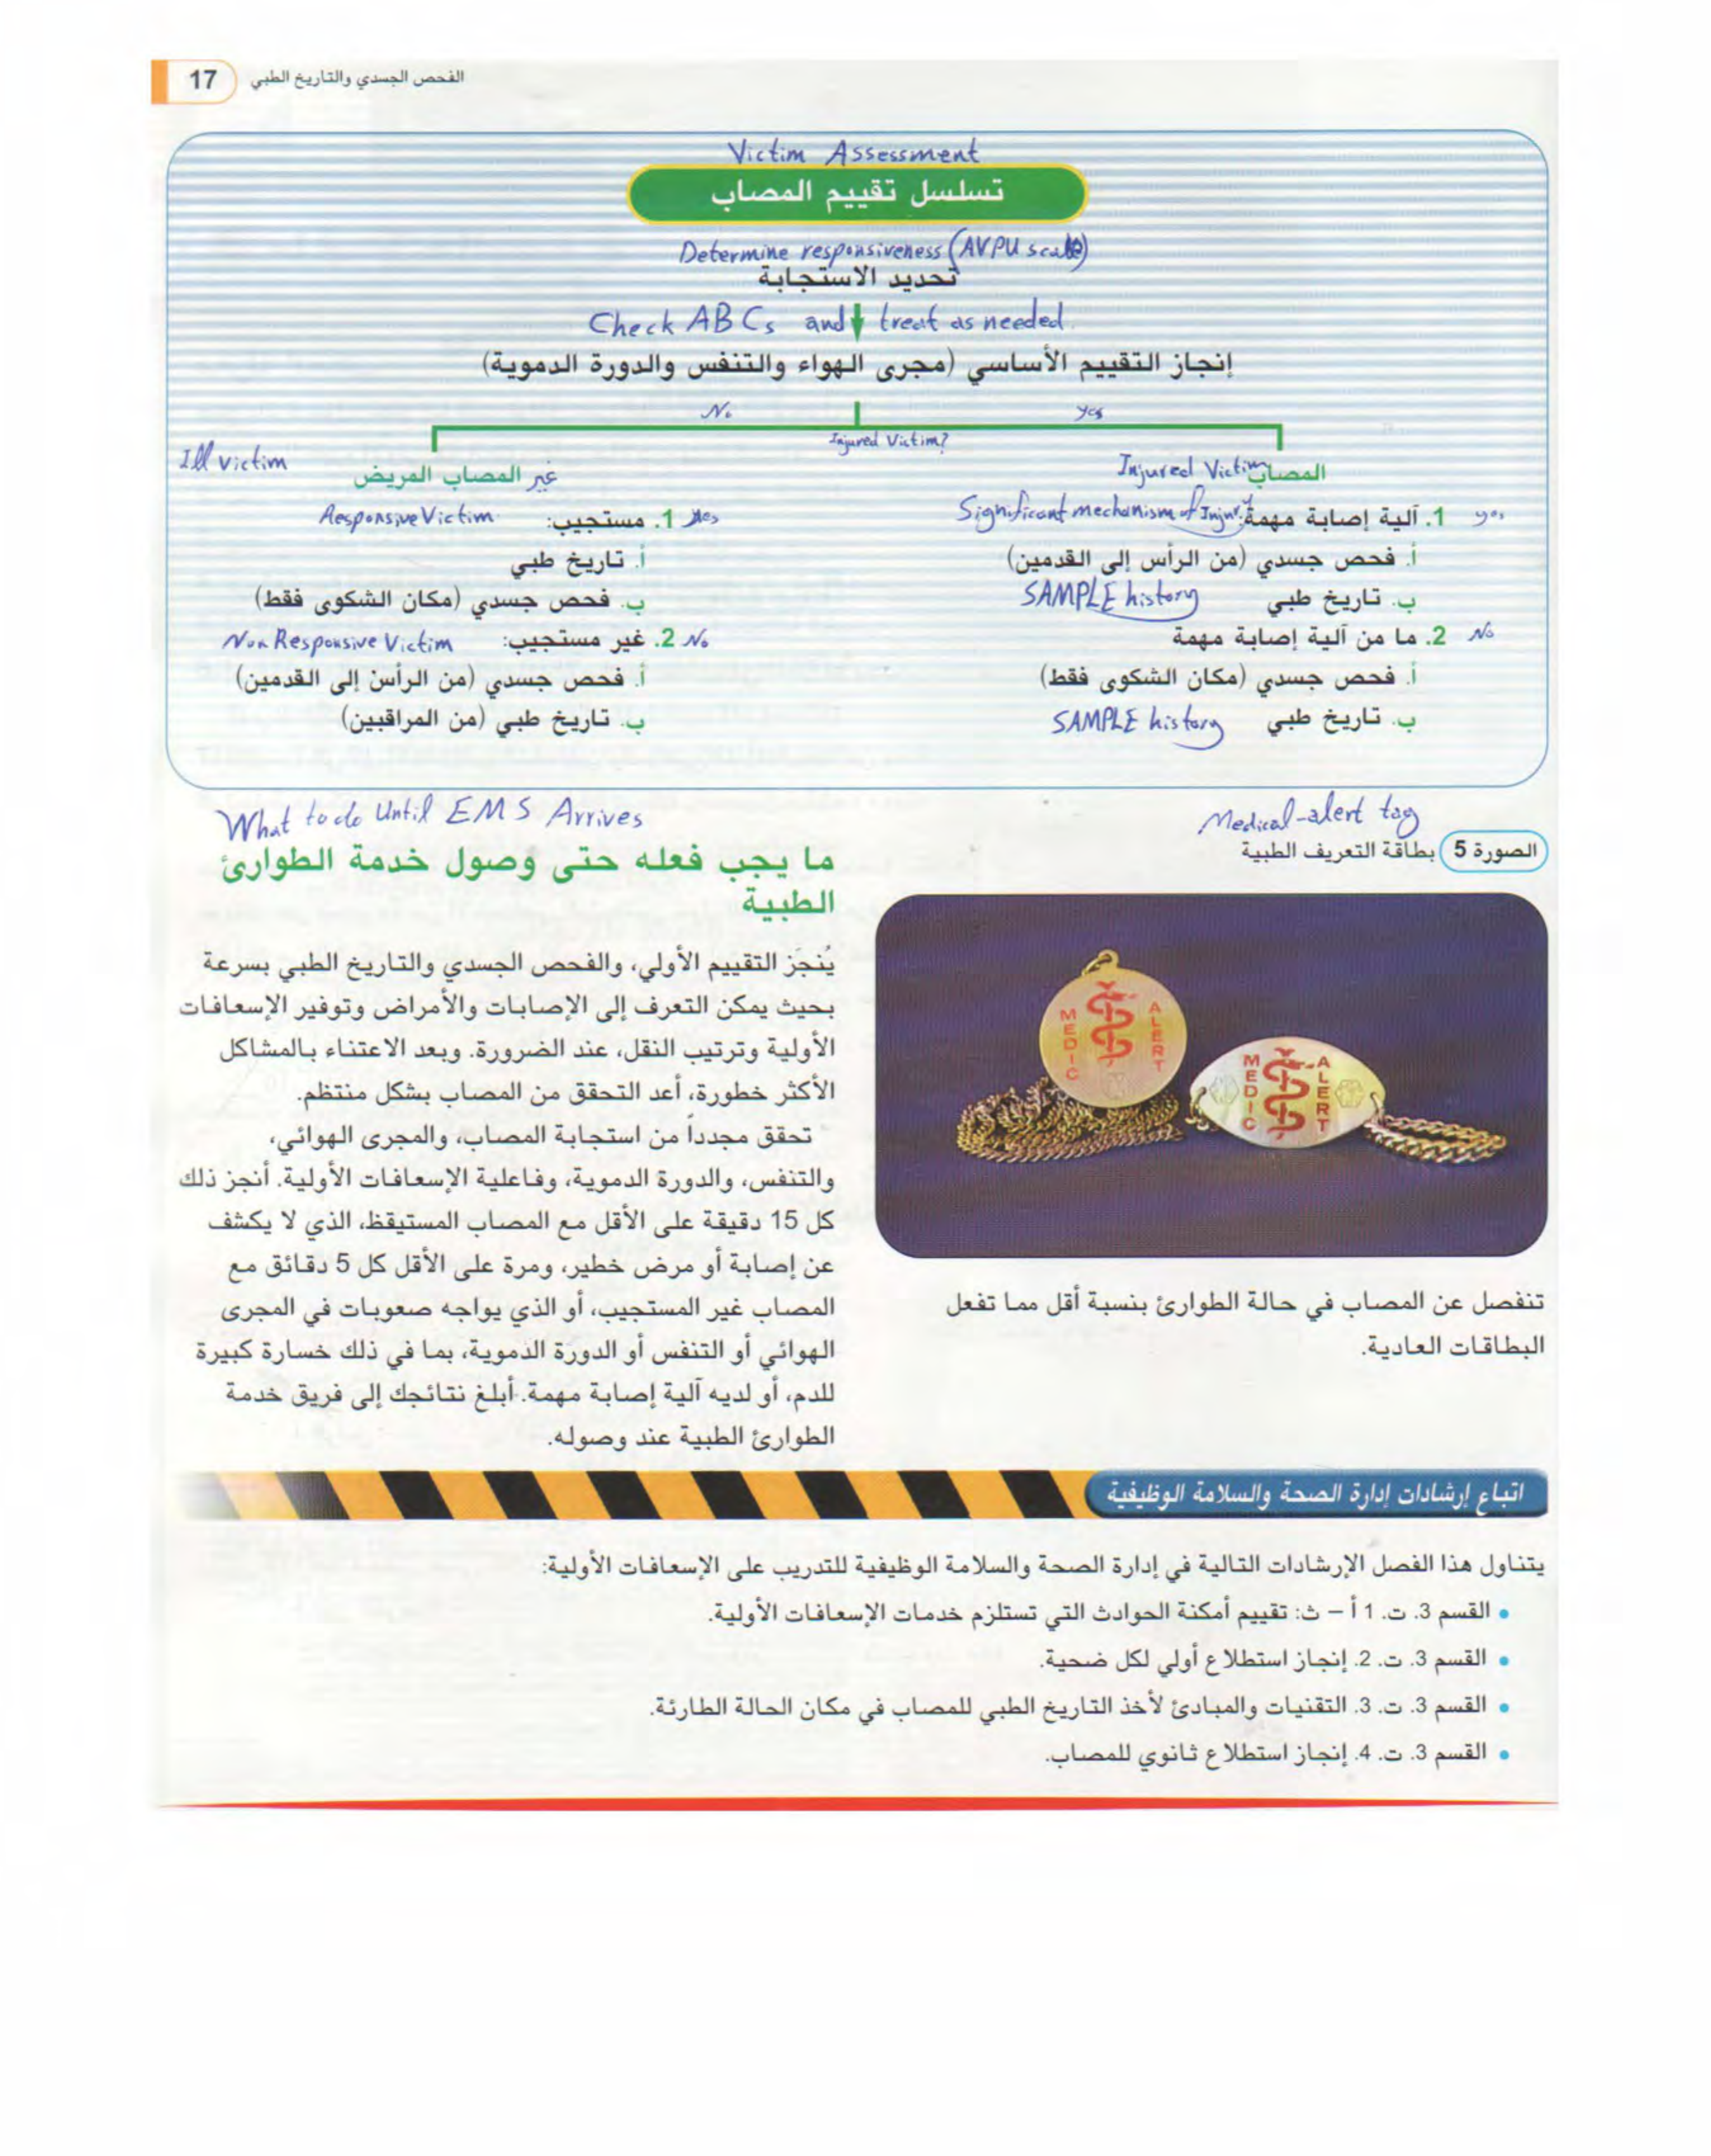 الفحص الجسدي والتاريخ الطبي 17
Victim Assessment
تسلسل تقييم المصاب
Determine responsiveness (AVPU scale)
تحديد الاستجابة
Check ABCs and treat as needed.
إنجاز التقييم الأساسي (مجرى الهواء والتنفس والدورة الدموية)
No
yes
Injured Victim?
Injured Victim
المصاب
yes
1. آلية إصابة مهمة:
Significant mechanism of Injury
أ. فحص جسدي (من الرأس إلى القدمين)
ب. تاريخ طبي SAMPLE history
No
2. ما من آلية إصابة مهمة
أ. فحص جسدي (مكان الشكوى فقط)
ب. تاريخ طبي SAMPLE history
Ill victim
غير المصاب المريض
yes
1. مستجيب: Responsive Victim
أ. تاريخ طبي
ب. فحص جسدي (مكان الشكوى فقط)
No
2. غير مستجيب: Non Responsive Victim
أ. فحص جسدي (من الرأس إلى القدمين)
ب. تاريخ طبي (من المراقبين)
Medical-alert tag
الصورة 5 بطاقة التعريف الطبية
MEDIC ALERT
MEDIC ALERT
تنفصل عن المصاب في حالة الطوارئ بنسبة أقل مما تفعل
البطاقات العادية.
What to do Until EMS Arrives
ما يجب فعله حتى وصول خدمة الطوارئ
الطبية
يُنجَز التقييم الأولي، والفحص الجسدي والتاريخ الطبي بسرعة
بحيث يمكن التعرف إلى الإصابات والأمراض وتوفير الإسعافات
الأولية وترتيب النقل، عند الضرورة. وبعد الاعتناء بالمشاكل
الأكثر خطورة، أعد التحقق من المصاب بشكل منتظم.
تحقق مجدداً من استجابة المصاب، والمجرى الهوائي،
والتنفس، والدورة الدموية، وفاعلية الإسعافات الأولية. أنجز ذلك
كل 15 دقيقة على الأقل مع المصاب المستيقظ، الذي لا يكشف
عن إصابة أو مرض خطير، ومرة على الأقل كل 5 دقائق مع
المصاب غير المستجيب، أو الذي يواجه صعوبات في المجرى
الهوائي أو التنفس أو الدورة الدموية، بما في ذلك خسارة كبيرة
للدم، أو لديه آلية إصابة مهمة. أبلغ نتائجك إلى فريق خدمة
الطوارئ الطبية عند وصوله.
اتباع إرشادات إدارة الصحة والسلامة الوظيفية
يتناول هذا الفصل الإرشادات التالية في إدارة الصحة والسلامة الوظيفية للتدريب على الإسعافات الأولية:
• القسم 3. ت. 1 أ – ث: تقييم أمكنة الحوادث التي تستلزم خدمات الإسعافات الأولية.
• القسم 3. ت. 2. إنجاز استطلاع أولي لكل ضحية.
• القسم 3. ت. 3. التقنيات والمبادئ لأخذ التاريخ الطبي للمصاب في مكان الحالة الطارئة.
• القسم 3. ت. 4. إنجاز استطلاع ثانوي للمصاب.